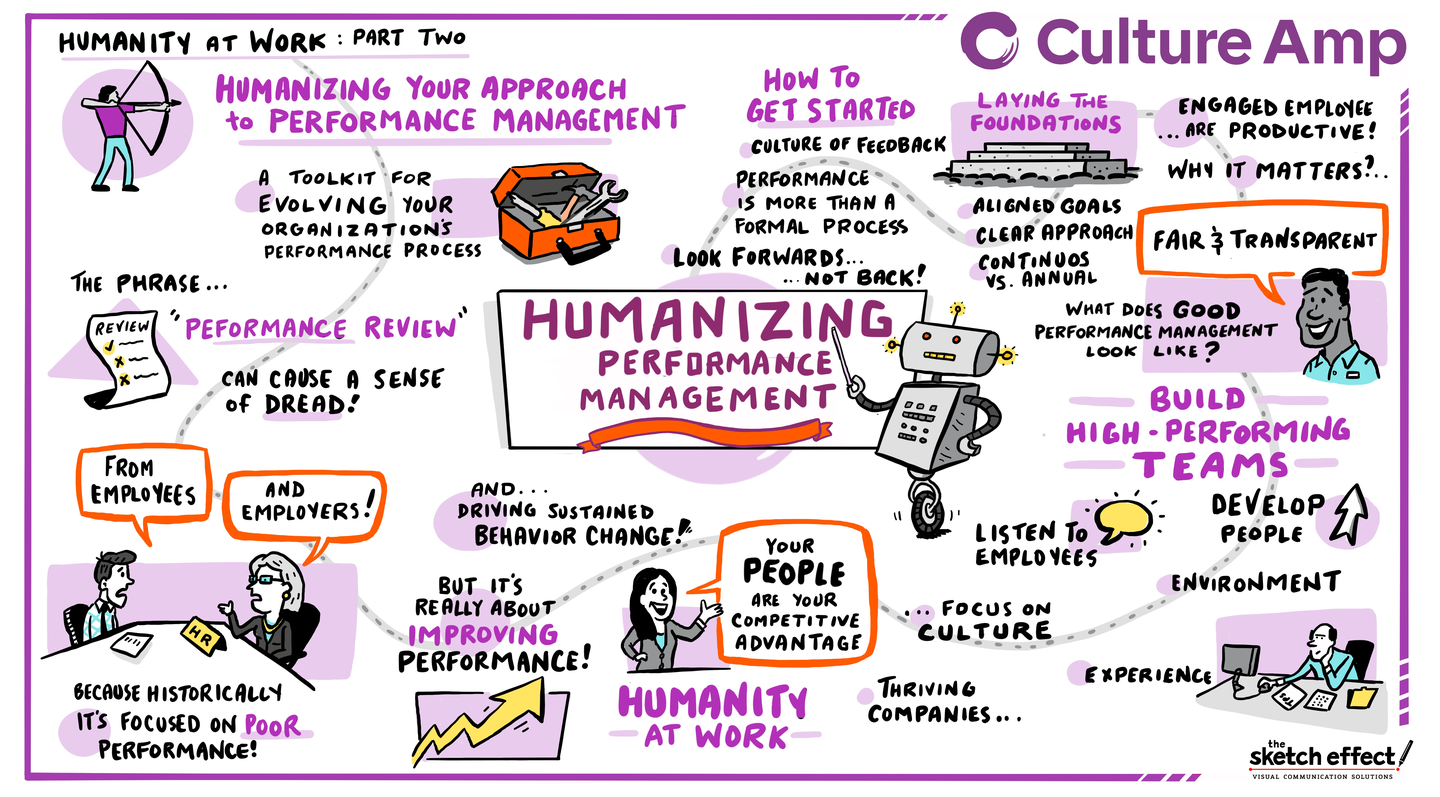 HUMANITY AT WORK : PART TWO
Culture Amp
HUMANIZING YOUR APPROACH
to PERFORMANCE MANAGEMENT
A TOOLKIT FOR
EVOLVING YOUR
ORGANIZATION'S
PERFORMANCE PROCESS
THE PHRASE...
REVIEW
"PEFORMANCE REVIEW"
CAN CAUSE A SENSE
of DREAD!
FROM
EMPLOYEES
AND
EMPLOYERS!
HR
BECAUSE HISTORICALLY
IT'S FOCUSED ON POOR
PERFORMANCE!
BUT IT'S
REALLY ABOUT
IMPROVING
PERFORMANCE!
AND...
DRIVING SUSTAINED
BEHAVIOR CHANGE!
HUMANIZING
PERFORMANCE
MANAGEMENT
HOW TO
GET STARTED
CULTURE OF FEEDBACK
PERFORMANCE
IS MORE THAN A
FORMAL PROCESS
LOOK FORWARDS...
...NOT BACK!
LAYING THE
FOUNDATIONS
ALIGNED GOALS
CLEAR APPROACH
CONTINUOS
VS. ANNUAL
ENGAGED EMPLOYEE
...ARE PRODUCTIVE!
WHY IT MATTERS?..
FAIR & TRANSPARENT
WHAT DOES GOOD
PERFORMANCE MANAGEMENT
LOOK LIKE?
BUILD
HIGH-PERFORMING
TEAMS
LISTEN TO
EMPLOYEES
DEVELOP
PEOPLE
ENVIRONMENT
EXPERIENCE
... FOCUS ON
CULTURE
THRIVING
COMPANIES...
YOUR
PEOPLE
ARE YOUR
COMPETITIVE
ADVANTAGE
HUMANITY
AT WORK
the
sketch effect
VISUAL COMMUNICATION SOLUTIONS